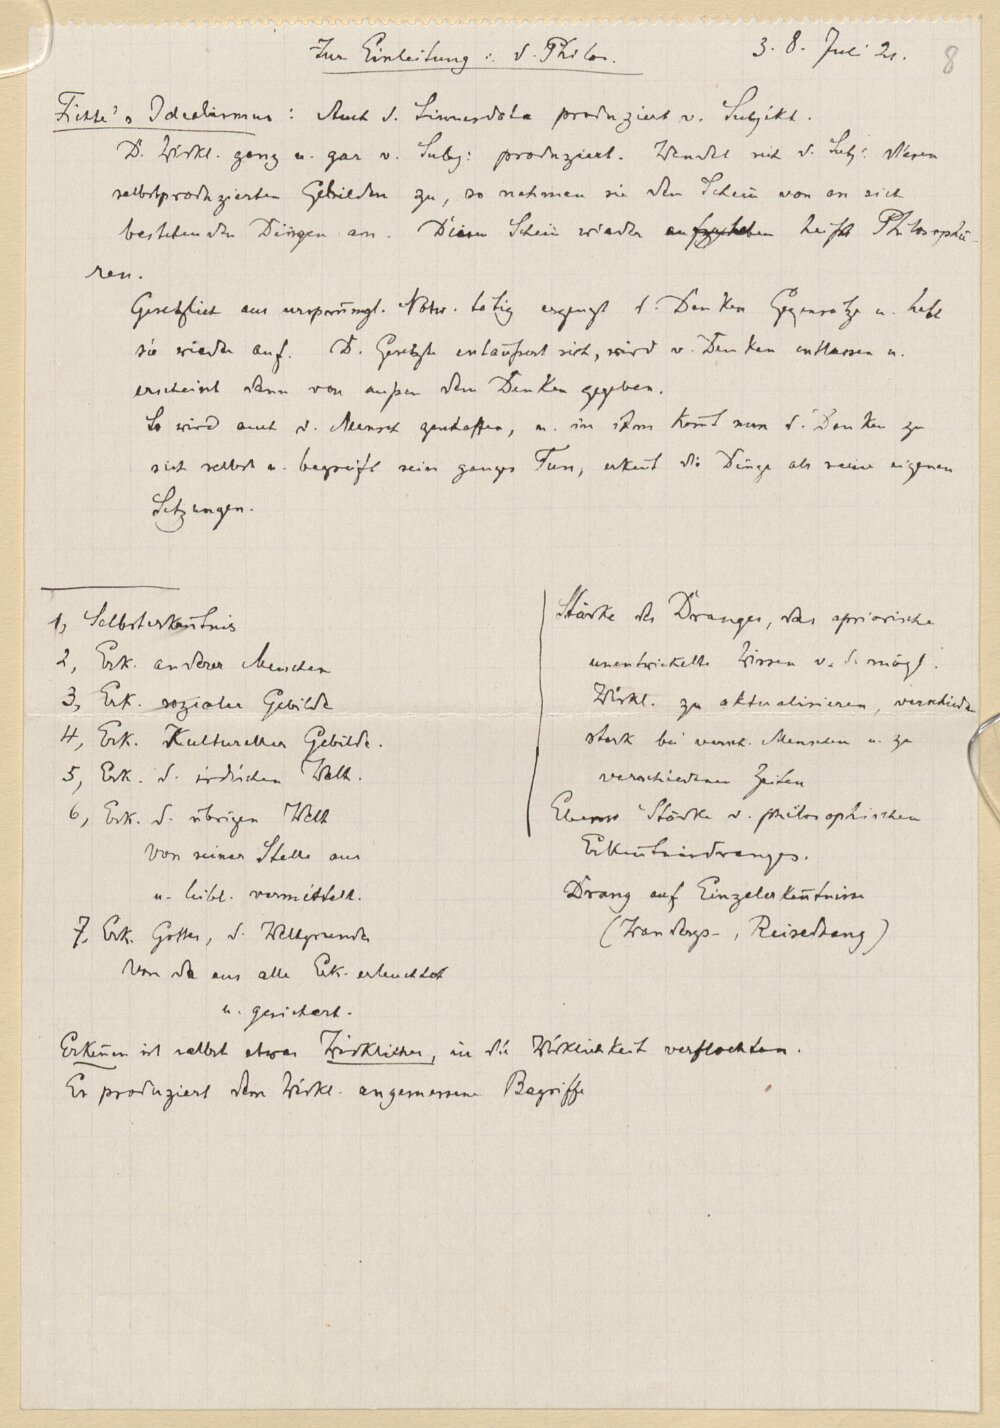 Zur Einleitung i. d. Philos.
3. 8. Juli 21.
8
Fichte's Idealismus: Auch d. Sinnesdata produziert v. Subjekt.
D. Wirkl. ganz u. gar v. Subj: produziert. Wendet sich d. Subj: diesen
selbstproduzierten Gebilden zu, so nehmen sie den Schein von an sich
bestehenden Dingen an. Diesen Schein wieder aufzuheben heißt Philosophie-
ren.
Gesetzlich aus ursprüngl. Notw. tätig erzeugt d. Denken Gegensätze u. hebt
sie wieder auf. D. Gesetzte entäußert sich, wird v. Denken entlassen u.
erscheint dann von außen dem Denken gegeben.
So wird auch d. Mensch geschaffen, u. in ihm kom̄t nun d. Denken zu
sich selbst u. begreift sein ganzes Tun, erken̄t die Dinge als seine eigenen
Setzungen.
1, Selbsterken̄tnis
2, Erk. anderer Menschen
3, Erk. sozialer Gebilde
4, Erk. Kultureller Gebilde.
5, Erk. d. irdischen Welt.
6, Erk. d. übrigen Welt
von seiner Stelle aus
u. leibl. vermittelt.
7, Erk. Gottes, d. Weltgrundes
Von da aus alle Erk. erleuchtet
u. gesichert.
Stärke des Dranges, das apriorische
unentwickelte Wissen v. d. mögl.
Wirkl. zu aktualisieren, verschieden
stark bei versch. Menschen u. zu
verschiedenen Zeiten
Ebenso Stärke d. philosophischen
Erken̄tnisdranges.
Drang auf Einzelerken̄tnisse
(Wanderngs-, Reisedrang)
Erken̄en ist selbst etwas Wirkliches, in die Wirklichkeit verflochten.
Es produziert dem Wirkl. angemessene Begriffe